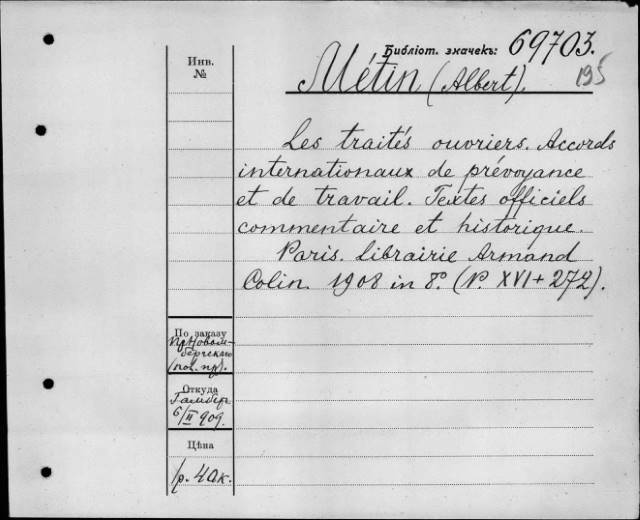 Библіот. значекъ: 69703.
195
Инв.
№
Métin (Albert).
Les traités ouvriers. Accords
internationaux de prévoyance
et de travail. Textes officiels
commentaire et historique.
Paris. Librairie Armand
Colin. 1908 in 8º. (P. XVI + 272).
По заказу
Откуда
6/II 909.
Цѣна
р. 40к.